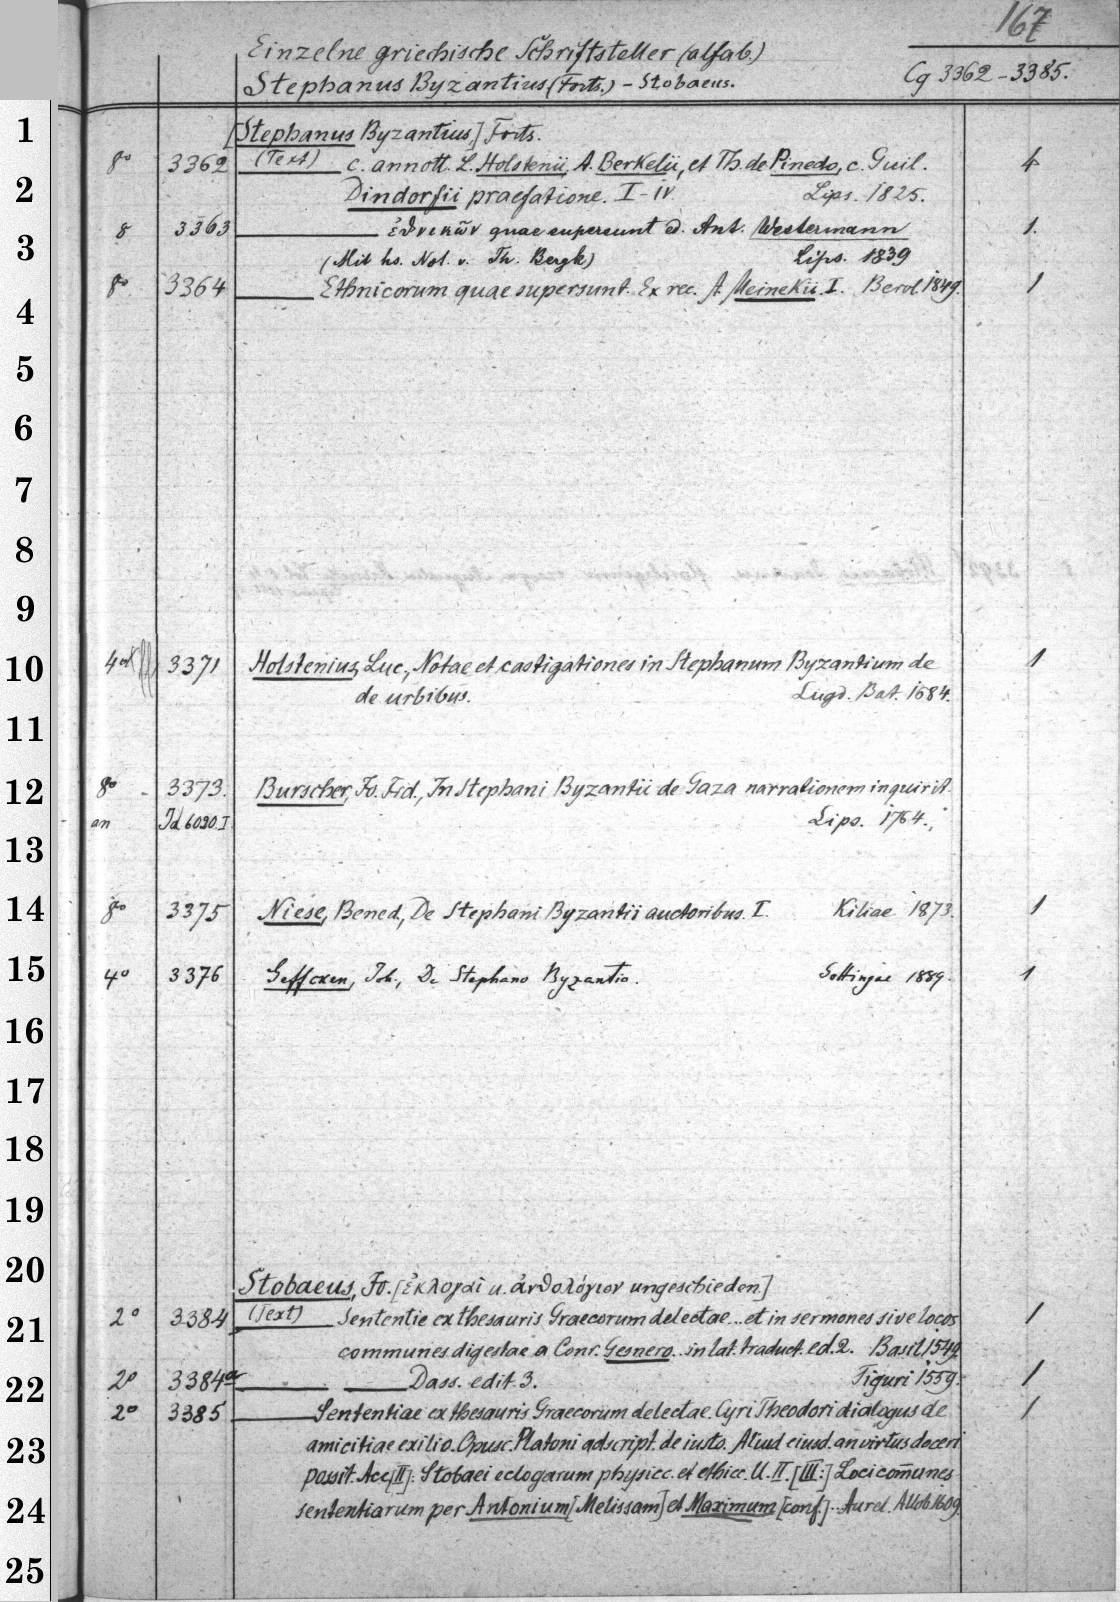 167
Einzelne griechische Schriftsteller (alfab.)
Stephanus Byzantius (Forts.) - Stobaeus.
Cg 3362-3385.
1
[Stephanus Byzantius] Forts.
8° 3362 (Text) c. annott. L. Holstenii, A. Berkelii, et Th. de Pinedo, c. Guil. 4
2
Dindorfii praefatione. I-IV. Lips. 1825.
8 3363 ἐθνικῶν quae supersunt ed. Ant. Westermann 1.
3
(Mit hs. Not. v. Th. Bergk) Lips. 1839
8° 3364 Ethnicorum quae supersunt. Ex rec. A. Meinekii. I. Berol. 1849. 1
4
5
6
7
8
9
10
4° 3371 Holstenius, Luc., Notae et castigationes in Stephanum Byzantium de 1
de urbibus. Lugd. Bat. 1684.
11
12
8° - 3373. Burscher, Jo. Frd., In Stephani Byzantii de Gaza narrationem inquirit.
an Id 6090 I Lips. 1764.
13
14
8° 3375 Niese, Bened., De Stephani Byzantii auctoribus. I. Kiliae 1873. 1
15
4° 3376 Geffcken, Joh., De Stephano Byzantio. Gottingae 1889. 1
16
17
18
19
20
Stobaeus, Jo. [ἐκλογαὶ u. ἀνθολόγιον ungeschieden.]
2° 3384 (Text) Sententie ex thesauris Graecorum delectae... et in sermones sive locos 1
21
communes digestae a Conr. Gesnero.. in lat. traduct. ed. 2. Basil. 1549.
22
2° 3384a Dass. edit. 3. Tiguri 1559. 1
2° 3385 Sententiae ex thesauris Graecorum delectae. Cyri Theodori dialogus de 1
23
amicitiae exilio. Opusc. Platoni adscript. de iusto. Aliud eiusd. an virtus doceri
possit. Acc. [II]: Stobaei eclogarum physicc. et ethicc. ll. II. [III:] Loci com̄unes
24
sententiarum per Antonium [Melissam] et Maximum [conf.].. Aurel. Allob. 1609.
25